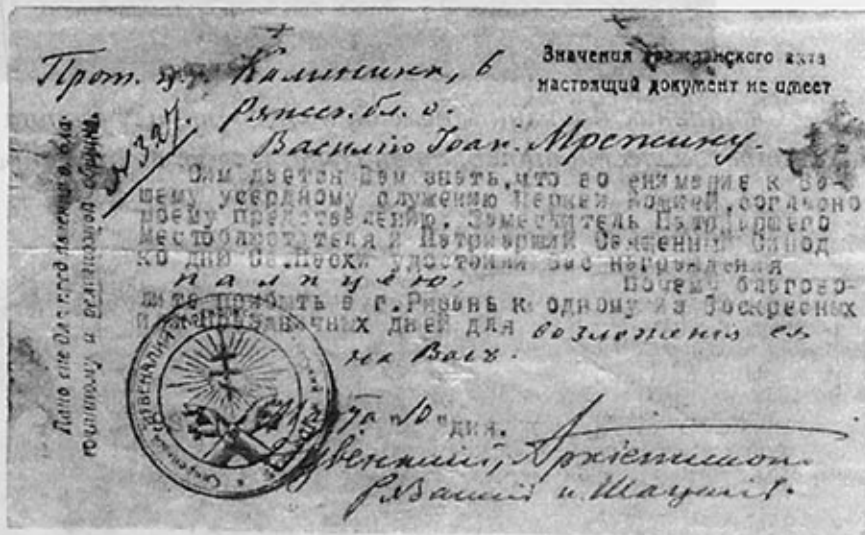 Значения гражданского акта
настоящий документ не имеет
Прот. ц. Калинина, 6
Ряжск. бл. о.
Василию Іоан. Мрежину.
№ 327.
Сим дается Вам знать, что во внимание к Ва-
шему усердному служению Церкви Божией, согласно
моему представлению, Заместитель Патриаршего
Местоблюстителя и Патриарший Священный Синод
ко дню Св. Пасхи удостоили Вас награждения
палицею. Почему благово-
лите прибыть в г. Рязань к одному из воскресных
и праздничных дней для возложения ея
на Васъ.
"10" дня.
Ювеналий, Архиепископ
Рязанский и Шацкий.